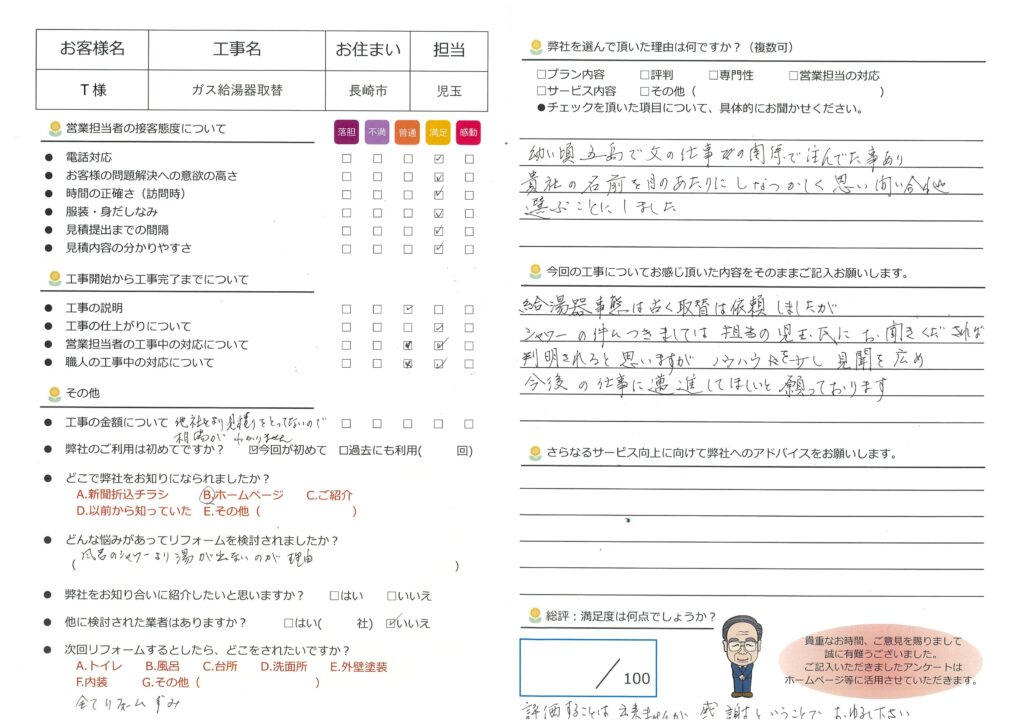 お客様名 工事名 お住まい 担当
T様 ガス給湯器取替 長崎市 児玉
営業担当者の接客態度について 落胆 不満 普通 満足 感動
● 電話対応 □ □ □ ☑ □
● お客様の問題解決への意欲の高さ □ □ □ ☑ □
● 時間の正確さ(訪問時) □ □ □ ☑ □
● 服装・身だしなみ □ □ □ ☑ □
● 見積提出までの間隔 □ □ □ ☑ □
● 見積内容の分かりやすさ □ □ □ ☑ □
工事開始から工事完了までについて
● 工事の説明 □ □ ☑ □ □
● 工事の仕上がりについて □ □ □ ☑ □
● 営業担当者の工事中の対応について □ □ ☑ ☑ □
● 職人の工事中の対応について □ □ ☑ ☑ □
その他
● 工事の金額について 他社より見積りをとってないので □ □ □ □ □
相場がわかりません
● 弊社のご利用は初めてですか? ☑今回が初めて □過去にも利用( 回)
● どこで弊社をお知りになられましたか?
A.新聞折込チラシ B.ホームページ C.ご紹介
D.以前から知っていた E.その他( )
● どんな悩みがあってリフォームを検討されましたか?
(風呂のシャワーより湯が出ないのが理由 )
● 弊社をお知り合いに紹介したいと思いますか? □はい □いいえ
● 他に検討された業者はありますか? □はい( 社) ☑いいえ
● 次回リフォームするとしたら、どこをされたいですか?
A.トイレ B.風呂 C.台所 D.洗面所 E.外壁塗装
F.内装 G.その他( )
全てリフォームずみ
弊社を選んで頂いた理由は何ですか?(複数可)
□プラン内容 □評判 □専門性 □営業担当の対応
□サービス内容 □その他( )
●チェックを頂いた項目について、具体的にお聞かせください。
幼い頃五島で父の仕事の関係で住んでた事あり
貴社の名前を目のあたりにしなつかしく思い問い合せ
選ぶことにしました
今回の工事についてお感じ頂いた内容をそのままご記入お願いします。
給湯器事態は古く取替は依頼しましたが
シャワーの件につきましては担当の児玉氏にお聞きくだされば
判明されると思いますが ノウハウを 見聞を広め
今後の仕事に邁進してほしいと願っております
さらなるサービス向上に向けて弊社へのアドバイスをお願いします。
総評:満足度は何点でしょうか?
/100
貴重なお時間、ご意見を賜りまして
誠に有難うございました。
ご記入いただきましたアンケートは
ホームページ等に活用させていただきます。
評価することは出来ませんが 感謝ということでお許し下さい